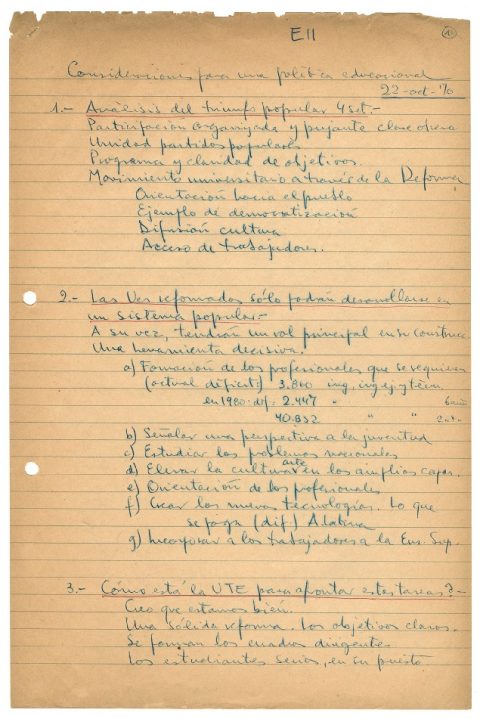 E11
1
Consideraciones para una política educacional
22-oct-70
1.- Análisis del triunfo popular 4 set.-
Participación organizada y pujante clase obrera
Unidad partidos populares
Programa y claridad de objetivos.
Movimiento universitario a través de la Reforma
Orientación hacia el pueblo
Ejemplo de democratización
Difusión cultura
Acceso de trabajadores.
2.- Las Ues reformadas sólo podrán desarrollarse en
un sistema popular.-
A su vez, tendrán un rol principal en su construcc
Una herramienta decisiva.
a) Formación de los profesionales que se requieren
(actual déficit) 3.860 ing, ing ej y técn.
en 1980. dif. 2.447 "
40.832 " "
b) Señalar una perspectiva a la juventud
c) Estudiar los problemas nacionales
d) Elevar la cultura arte en las amplias capas.
e) Orientación de los profesionales
f) Crear las nuevas tecnologías. Lo que
se paga (dif) A latina
g) Incorporar a los trabajadores a la Ens. Sup.
3.- Cómo está la UTE para afrontar estas tareas?-
Creo que estamos bien.
Una sólida reforma. Los objetivos claros.
Se forman los cuadros dirigente.
Los estudiantes serios, en su puesto